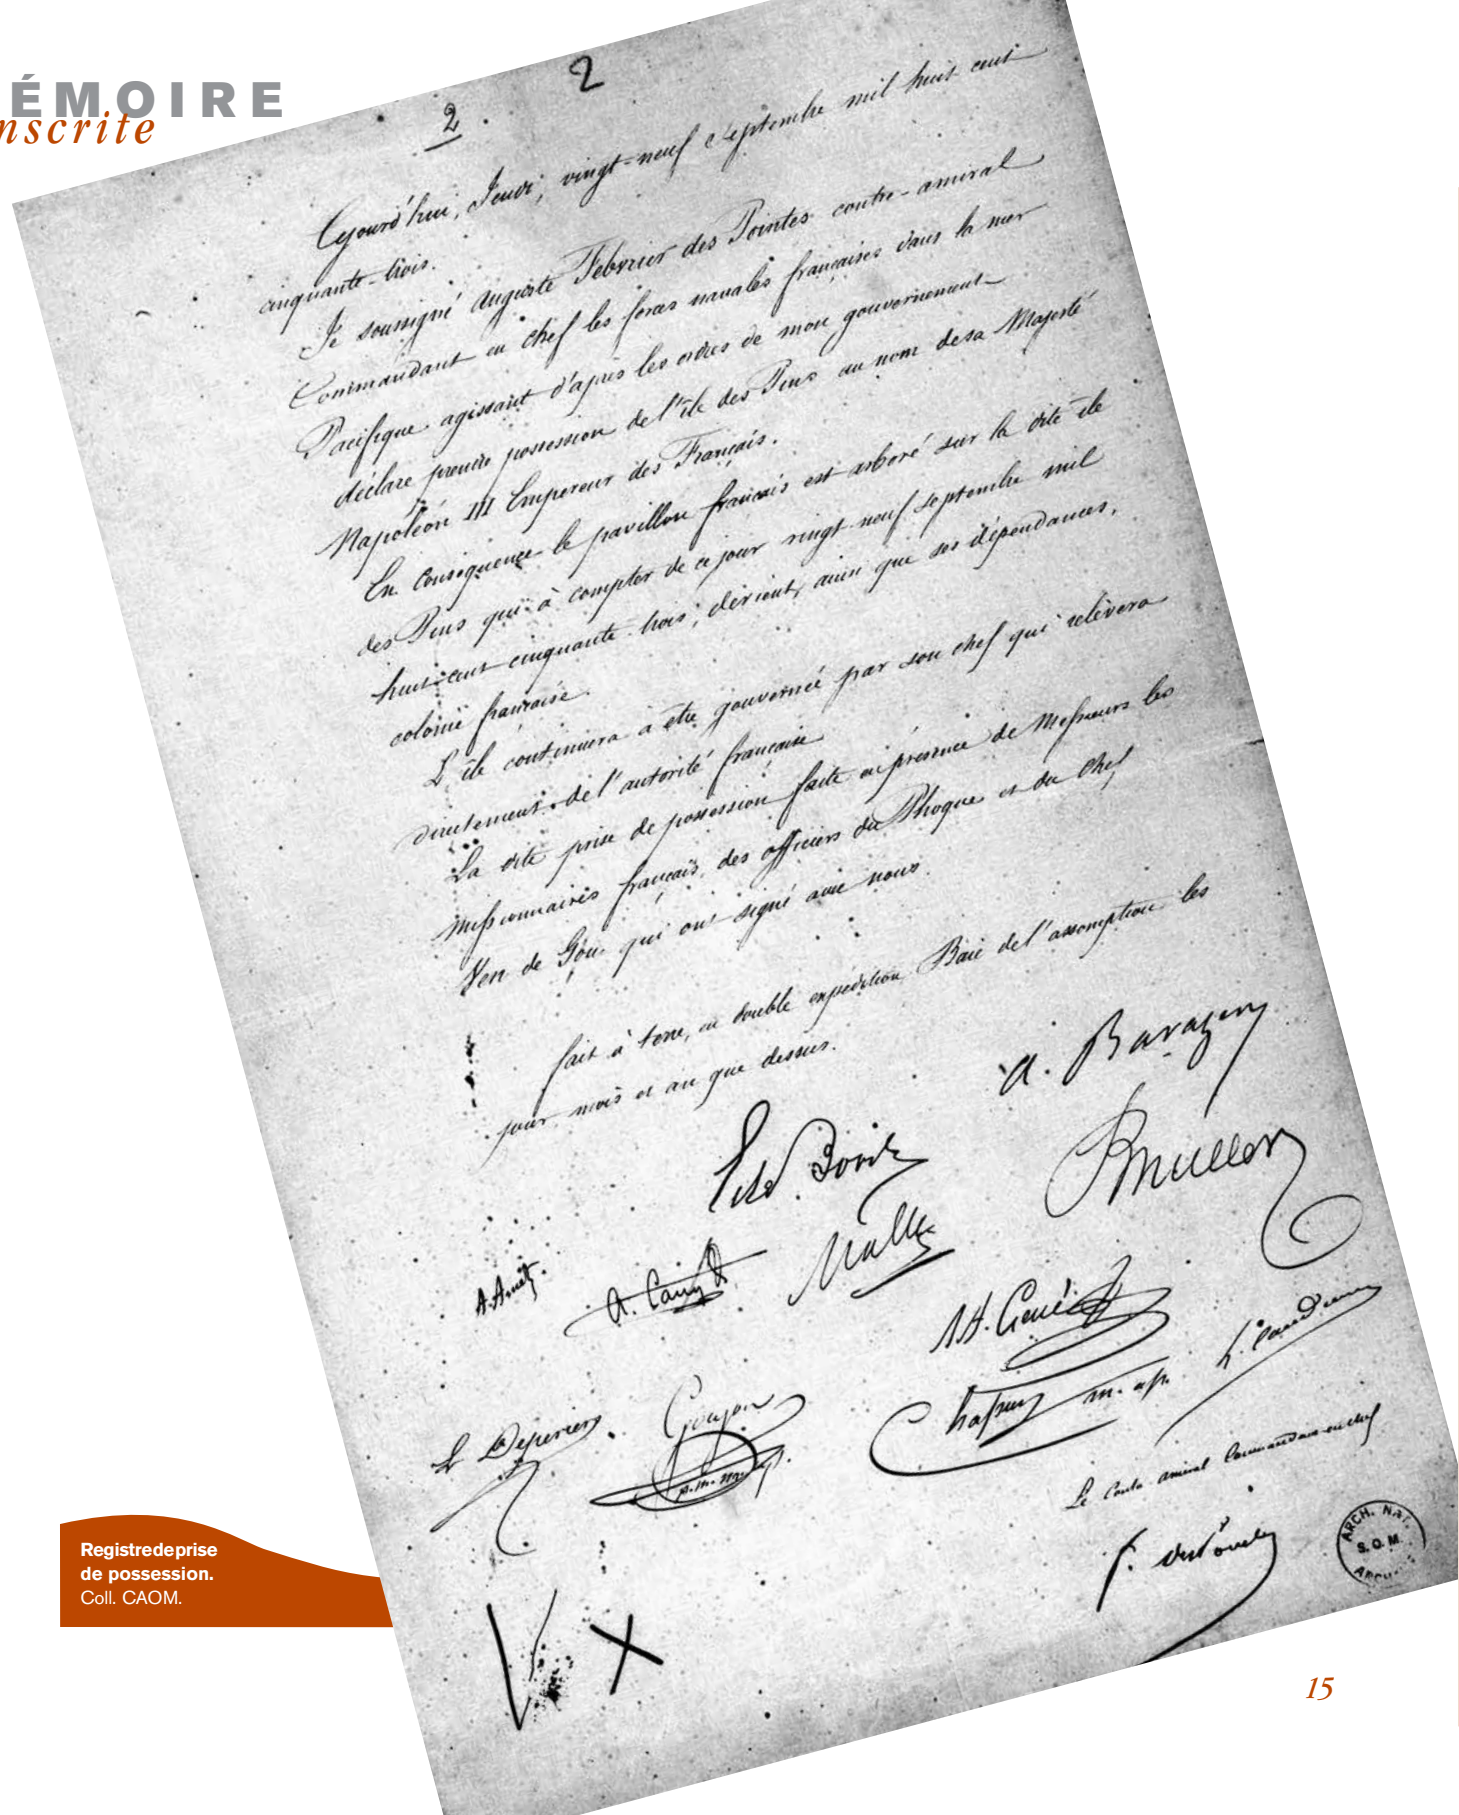 ÉMOIRE
nscrite
2
2.
Ajourd'hui, Jeudi, vingt-neuf Septembre mil huit cent
cinquante-trois.
Je soussigné Auguste Febvrier des Pointes contre-amiral
Commandant en chef les forces navales françaises dans la mer
Pacifique agissant d'après les ordres de mon gouvernement
déclare prendre possession de l'île des Pins au nom de sa Majesté
Napoléon III Empereur des Français.
En conséquence le pavillon français est arboré sur la dite île
des Pins qui à compter de ce jour vingt-neuf septembre mil
huit-cent cinquante trois, devient, ainsi que ses dépendances,
colonie française.
L'île continuera à être gouvernée par son chef qui relèvera
directement de l'autorité française
La dite prise de possession faite en présence de Messieurs les
missionnaires français, des officiers du Phoque et du Chef
Ven de Gou qui ont signé avec nous.
fait à terre, en double expédition Baie de l'assomption les
jour, mois et an que dessus.
A. Barazer
Muller
A. Amet.
A. Cany
Malle
Goujon
p. m. m.
Chapuy m. ap.
Le Contre amiral Commandant en chef
f. des Pointes
ARCH. NAT.
S.O.M.
V X
Registredeprise
de possession.
Coll. CAOM.
15